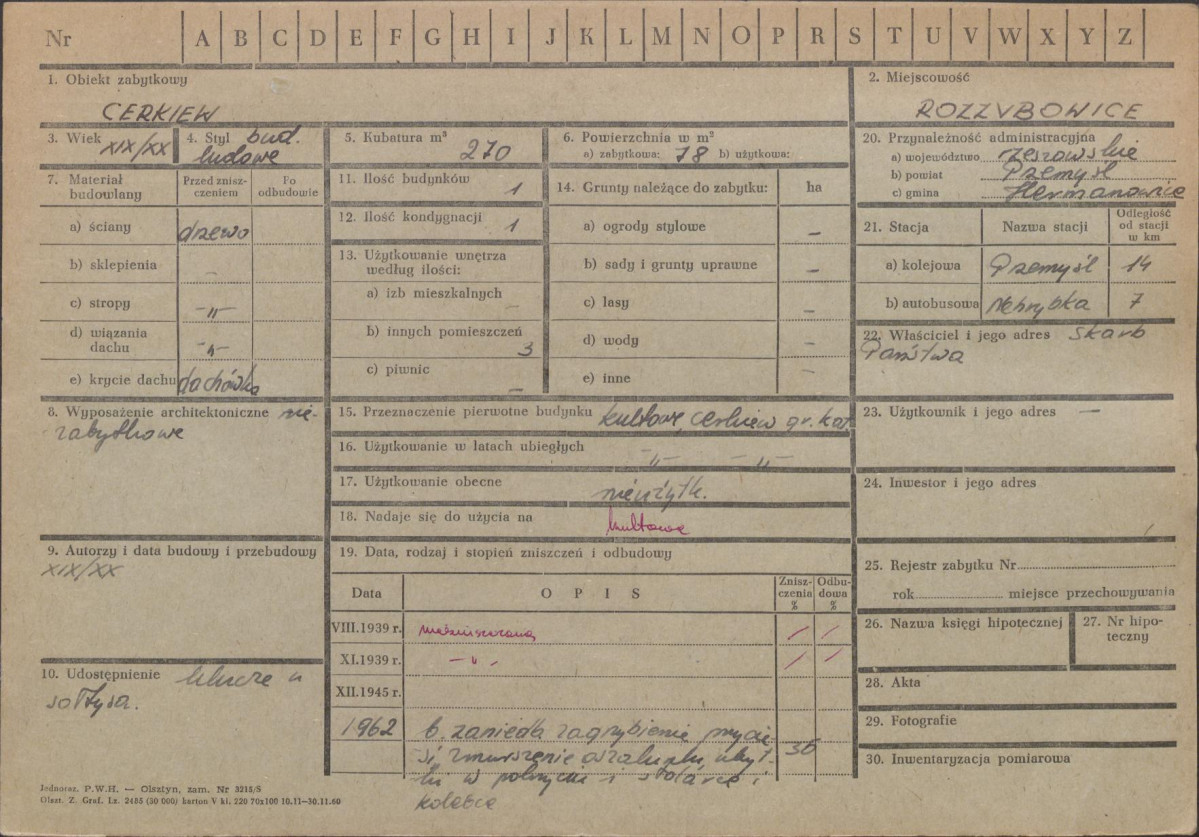 Nr A B C D E F G H I J K L M N O P R S T U V W X Y Z
1. Obiekt zabytkowy
CERKIEW
2. Miejscowość
ROZZUBOWICE
3. Wiek XIX/XX
4. Styl bud.
ludowe
5. Kubatura m³
270
6. Powierzchnia w m²
a) zabytkowa: 78 b) użytkowa:
20. Przynależność administracyjna
a) województwo rzeszowskie
b) powiat Przemyśl
c) gmina Hermanowice
7. Materiał budowlany
Przed zniszczeniem
Po odbudowie
a) ściany drzewo
b) sklepienia –
c) stropy –„–
d) wiązania dachu –„–
e) krycie dachu dachówka
11. Ilość budynków 1
12. Ilość kondygnacji 1
13. Użytkowanie wnętrza
według ilości:
a) izb mieszkalnych –
b) innych pomieszczeń 3
c) piwnic –
14. Grunty należące do zabytku: ha
a) ogrody stylowe –
b) sady i grunty uprawne –
c) lasy –
d) wody –
e) inne –
21. Stacja Nazwa stacji Odległość od stacji w km
a) kolejowa Przemyśl 14
b) autobusowa Nehrybka 7
22. Właściciel i jego adres Skarb
Państwa
8. Wyposażenie architektoniczne nie-
zabytkowe
15. Przeznaczenie pierwotne budynku kultowe, cerkiew gr. kat.
16. Użytkowanie w latach ubiegłych
–„– –„–
17. Użytkowanie obecne nieużytk.
18. Nadaje się do użycia na kultowe
23. Użytkownik i jego adres –
24. Inwestor i jego adres
9. Autorzy i data budowy i przebudowy
XIX/XX
19. Data, rodzaj i stopień zniszczeń i odbudowy
Data OPIS Zniszczenia % Odbudowa %
VIII.1939 r. / /
XI.1939 r. –„– / /
XII.1945 r.
1962 b. zaniedb. zagrzybienie przycie-
si, zmurszenie oszalunku, ubyt- 30
ki w pokryciu i stolarce i
kolebce
10. Udostępnienie klucze u
sołtysa.
25. Rejestr zabytku Nr
rok miejsce przechowywania
26. Nazwa księgi hipotecznej
27. Nr hipo-
teczny
28. Akta
29. Fotografie
30. Inwentaryzacja pomiarowa
Jednoraz. P.W.H. — Olsztyn, zam. Nr 3218/S
Olszt. Z. Graf. Lz. 2485 (50 000) karton V kl. 220 70x100 10.11—30.11.60